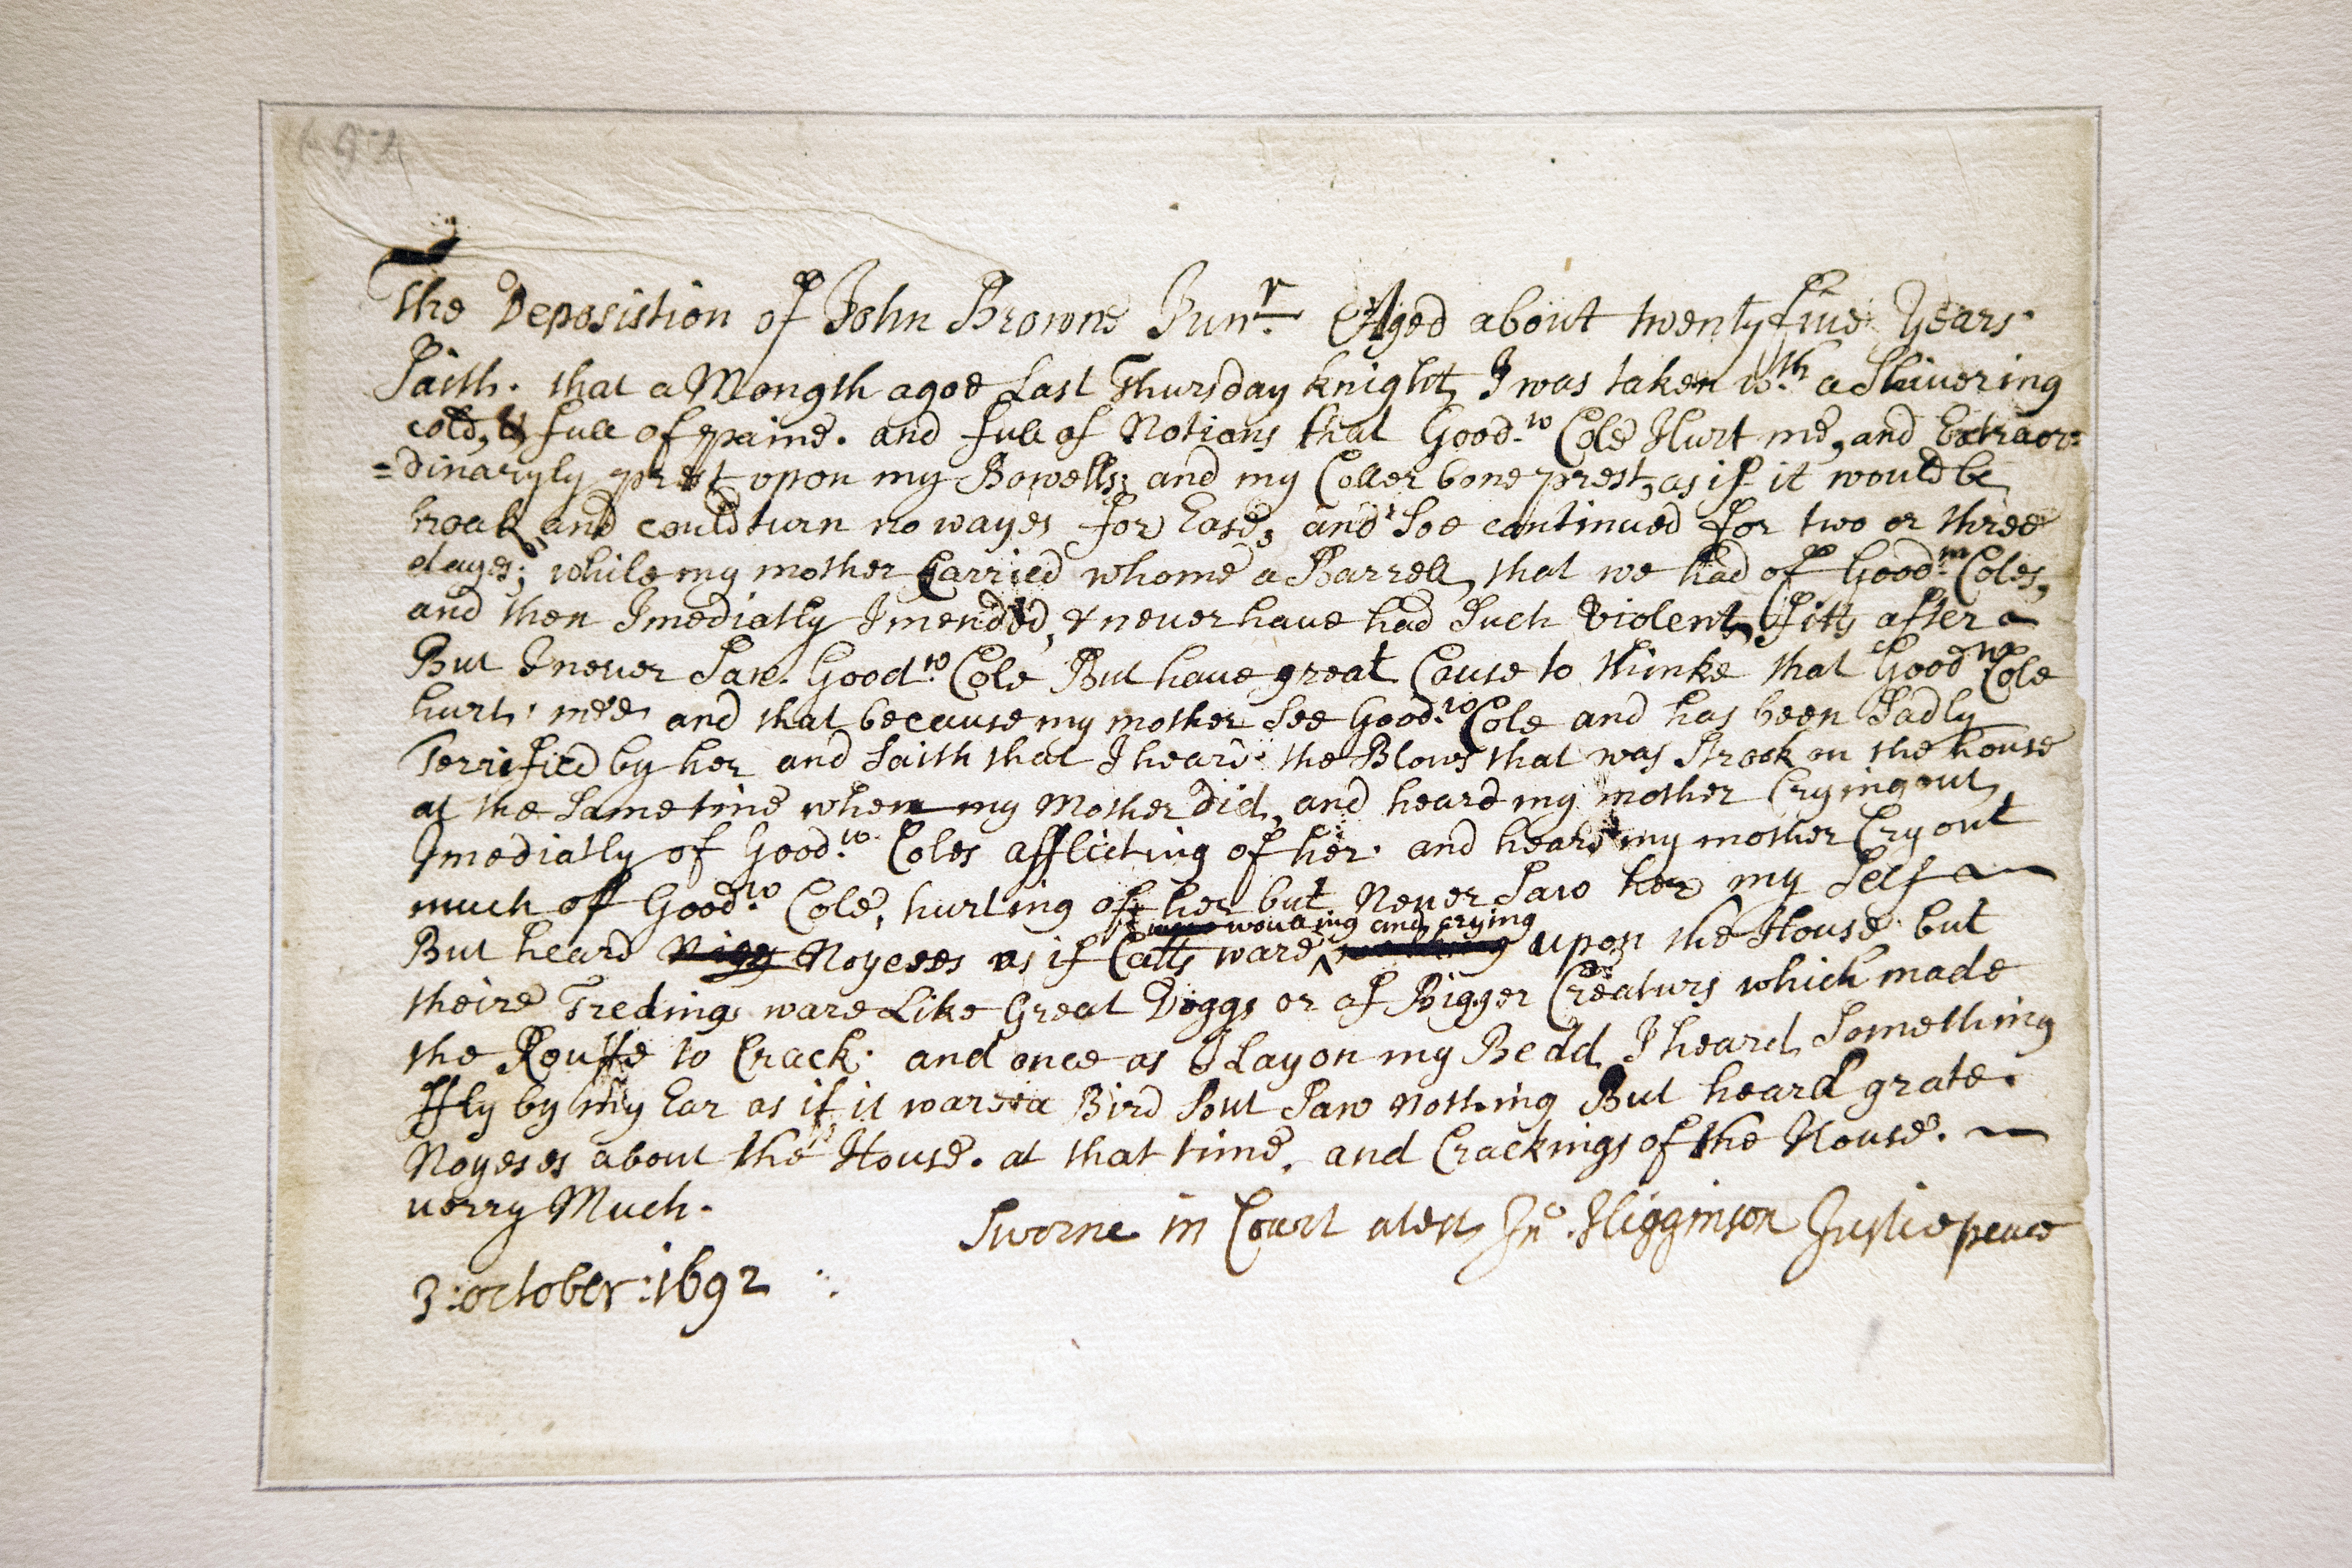 The Deposistion of John Browne Junr Aged about twenty five Years
Saith. that a Mongth agoe Last Thursday knight, I was taken wth a Shivering
cold, & full of paine. and full of Notions that Good.w Cole Hurt me, and Extraor=
=dinaryly prest upon my Bowells; and my Coller bone prest, as if it would be
broak and could turn no wayes for Ease, and Soe continued for two or three
dayes; while my mother Carried whome a Barrell, that we had of Good.m Coles,
and then Imediatly I mended, & never have had Such Violent, fitts after
But I never Saw. Good.w Cole But have great Cause to thinke that Good wa Cole
hurt mee and that because my mother See Good.w Cole and has been Sadly
Terrified by her and Saith that I heard the Blows that was Strook on the house
at the Same time when my Mother did, and heard my mother Crying out,
Imediatly of Good.w Coles afflicting of her. and heard my mother Cry out
much of Good.w Cole, hurting of her but Never Saw her my Self
wouling and crying
But heard Noyeses as if Catts ware upon the House but
theire Treding ware Like Great Doggs or of Bigger Creaturs which made
the Rouffe to Crack. and once as I Lay on my Bedd I heard Something
ffly by my Ear as if it ware a Bird but Saw nothing But heard grate.
Noyeses about the House. at that time, and Crackings of the House.
verry Much.
Sworne in Court atest, Jno. Higginson Justice peace
3: october: 1692